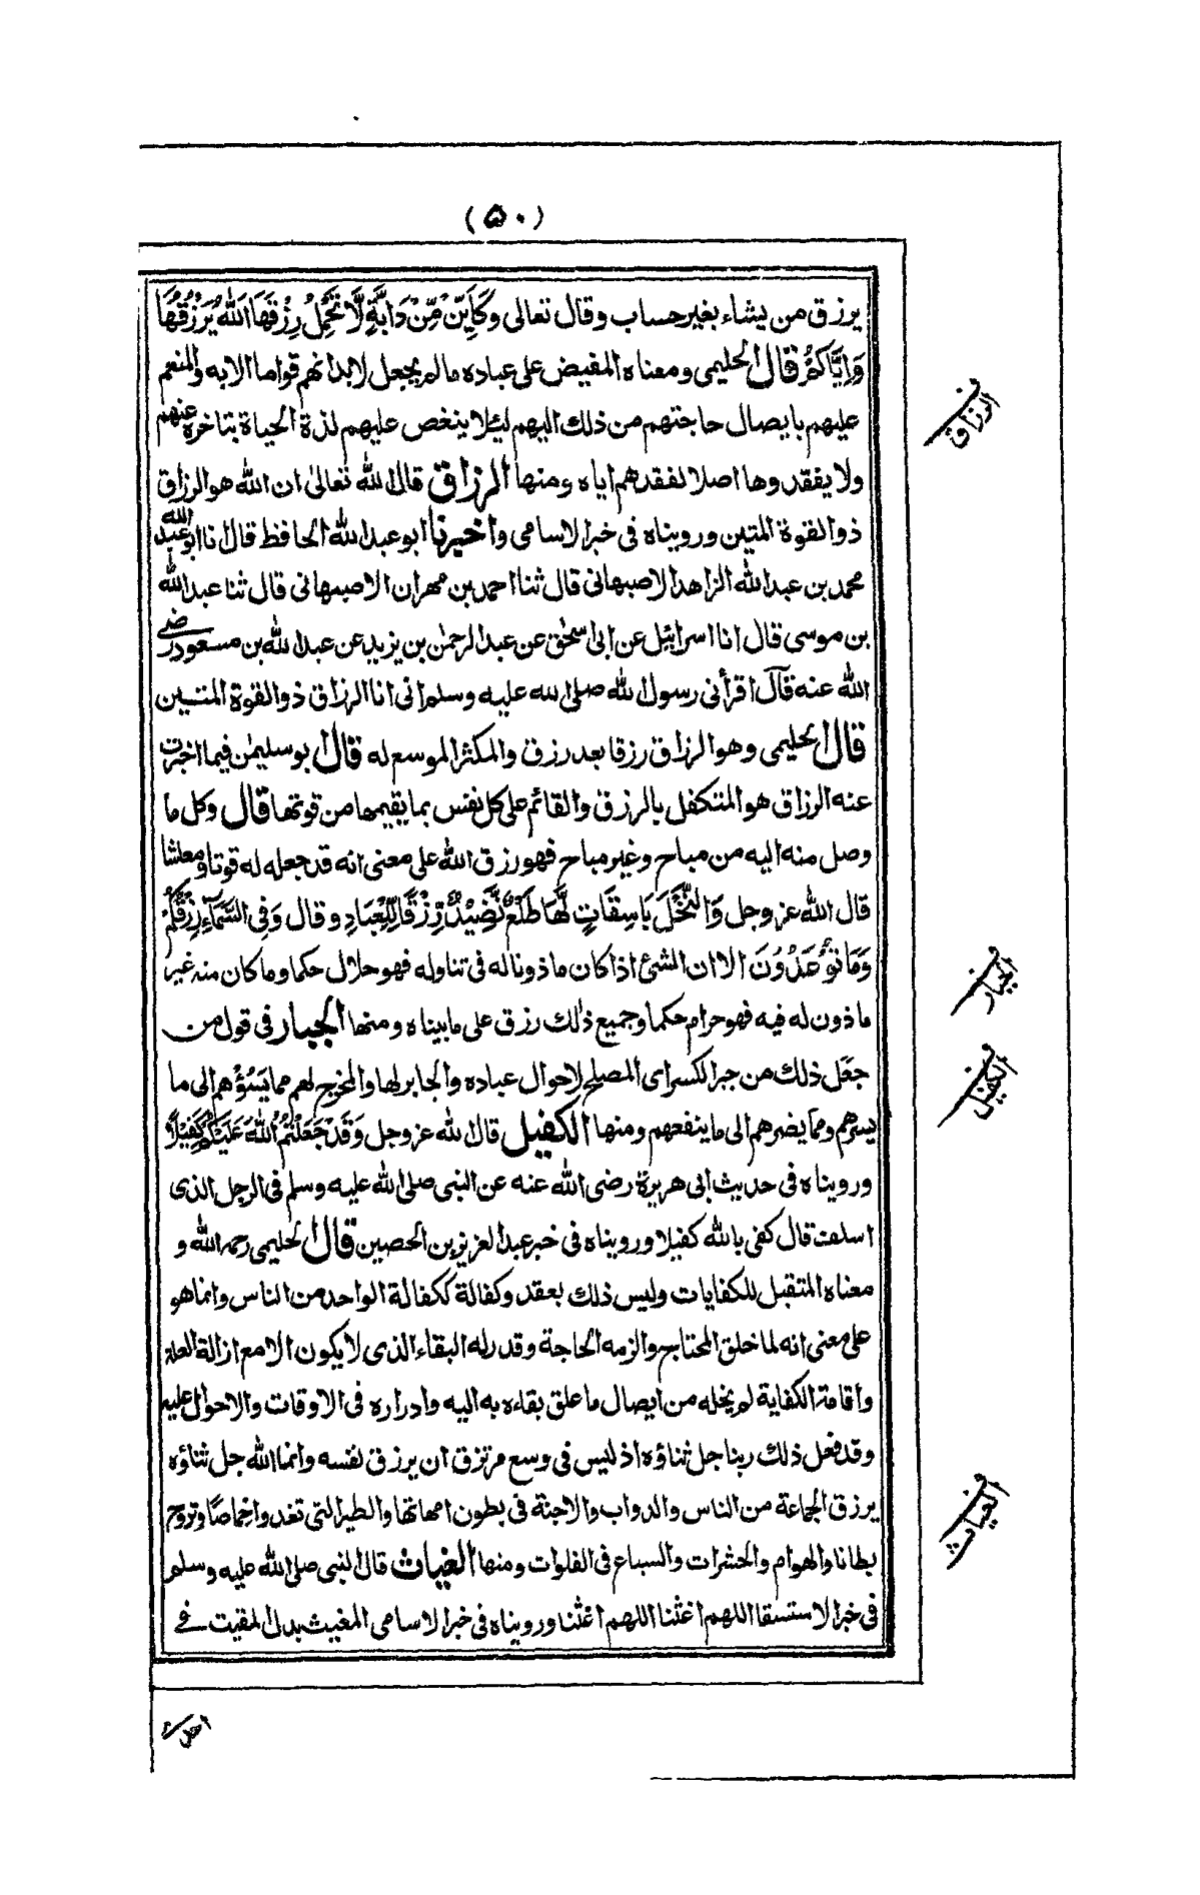 (۵۰)
يرزق من يشاء بغير حساب وقال تعالى وَكَاَيِّنْ مِّنْ دَابَّةٍ لَّا تَحْمِلُ رِزْقَهَا اَللّٰهُ يَرْزُقُهَا
وَاِيَّاكُمْ قال الحليمى ومعناه المفيض على عباده مالم يجعل لابدانهم قواما الا به والمنعم
عليهم بايصال حاجتهم من ذلك اليهم لئلا ينغص عليهم لذة الحياة بتاخره عنهم
ولا يفقدوها اصلا لفقدهم اياه ومنها الرزاق قال الله تعالىٰ ان الله هو الرزاق
ذو القوة المتين ورويناه فى خبر الاسامى واخبرنا ابو عبد الله الحافظ قال انا ابو عبد الله
محمد بن عبد الله الزاهد الاصبهانى قال ثنا احمد بن مهران الاصبهانى قال ثنا عبد الله
بن موسى قال انا اسرائيل عن ابى اسحٰق عن عبد الرحمٰن بن يزيد عن عبد الله بن مسعود رضى
الله عنه قال اقرأنى رسول الله صلى الله عليه وسلم انى انا الرزاق ذو القوة المتين
قال الحليمى وهو الرزاق رزقا بعد رزق والمكثر الموسع له قال ابو سليمٰن فيما اخبرت
عنه الرزاق هو المتكفل بالرزق والقائم على كل نفس بما يقيمها من قوتها قال وكل ما
وصل منه اليه من مباح وغير مباح فهو رزق الله على معنى انه قد جعله له قوتا ومعاشا
قال الله عز وجل وَالنَّخْلَ بَاسِقَاتٍ لَّهَا طَلْعٌ نَّضِيْدٌ رِّزْقًا لِّلْعِبَادِ وقال وَفِى السَّمَآءِ رِزْقُكُمْ
وَمَا تُوْعَدُوْنَ الا ان الشئ اذا كان ماذونا له فى تناوله فهو حلال حكما وما كان منه غير
ماذون له فيه فهو حرام حكما وجميع ذلك رزق على ما بيناه ومنها الجبار فى قول من
جعل ذلك من جبر الكسر اى المصلح لاحوال عباده والجابر لها والمخرج لهم مما يسؤهم الى ما
يسرهم ومما يضرهم الى ما ينفعهم ومنها الكفيل قال الله عز وجل وَقَدْ جَعَلْتُمُ اللّٰهَ عَلَيْكُمْ كَفِيْلًا
ورويناه فى حديث ابى هريرة رضى الله عنه عن النبى صلى الله عليه وسلم فى الرجل الذى
اسلف قال كفى بالله كفيلا ورويناه فى خبر عبد العزيز بن الحصين قال الحليمى رحمه الله و
معناه المتقبل للكفايات وليس ذلك بعقد وكفالة ككفالة الواحد من الناس وانما هو
على معنى انه لما خلق المحتاج والزمه الحاجة وقدر له البقاء الذى لا يكون الا مع ازالة العلة
واقامة الكفاية لم يخله من ايصال ما علق بقاءه به اليه وادراره فى الاوقات والاحوال عليه
وقد فعل ذلك ربنا جل ثناؤه اذ ليس فى وسع مرتزق ان يرزق نفسه وانما الله جل ثناؤه
يرزق الجماعة من الناس والدواب والاجنة فى بطون امهاتها والطير التى تغدوا خماصا وتروح
بطانا والهوام والحشرات والسباع فى الفلوات ومنها الغياث قال النبى صلى الله عليه وسلم
فى خبر الاستسقا اللهم اغثنا اللهم اغثنا ورويناه فى خبر الاسامى المغيث بدل المقيت فى
الرزاق
الجبار
الكفيل
الغياث